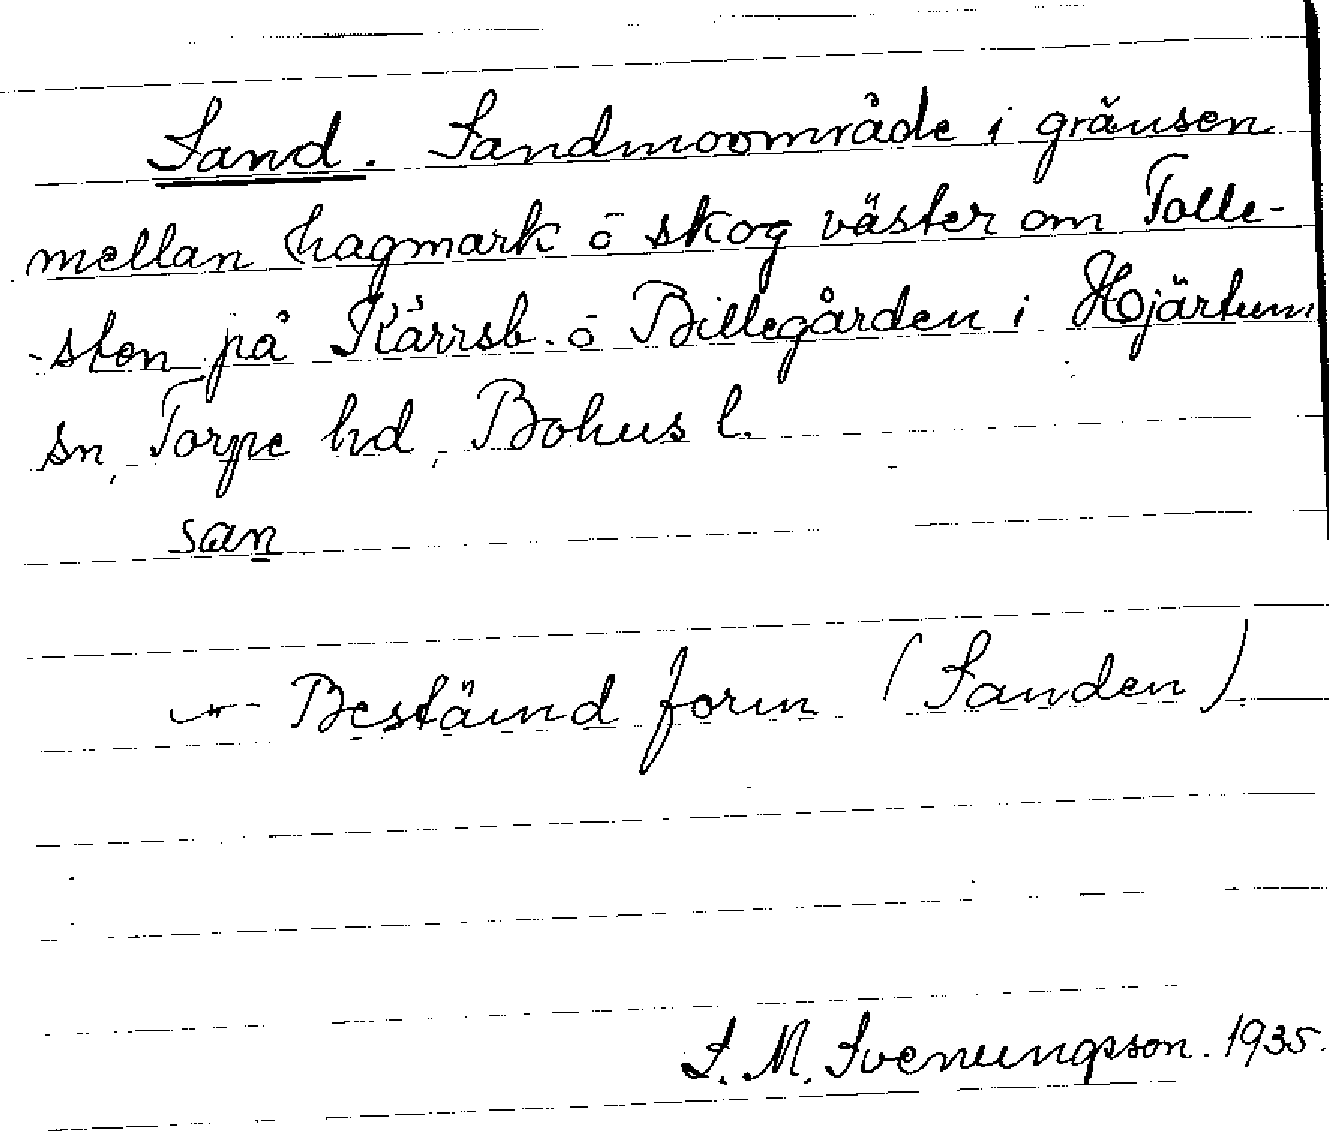 Sand. Sandmoområde i gränsen
mellan hagmark ō skog väster om Tolle-
-sten på Kärrsb. ō Billegården i Hjärtum
sn, Torpe hd, Bohus l.
san
Bestämd form (Sanden)
S. M. Svenungsson. 1935.